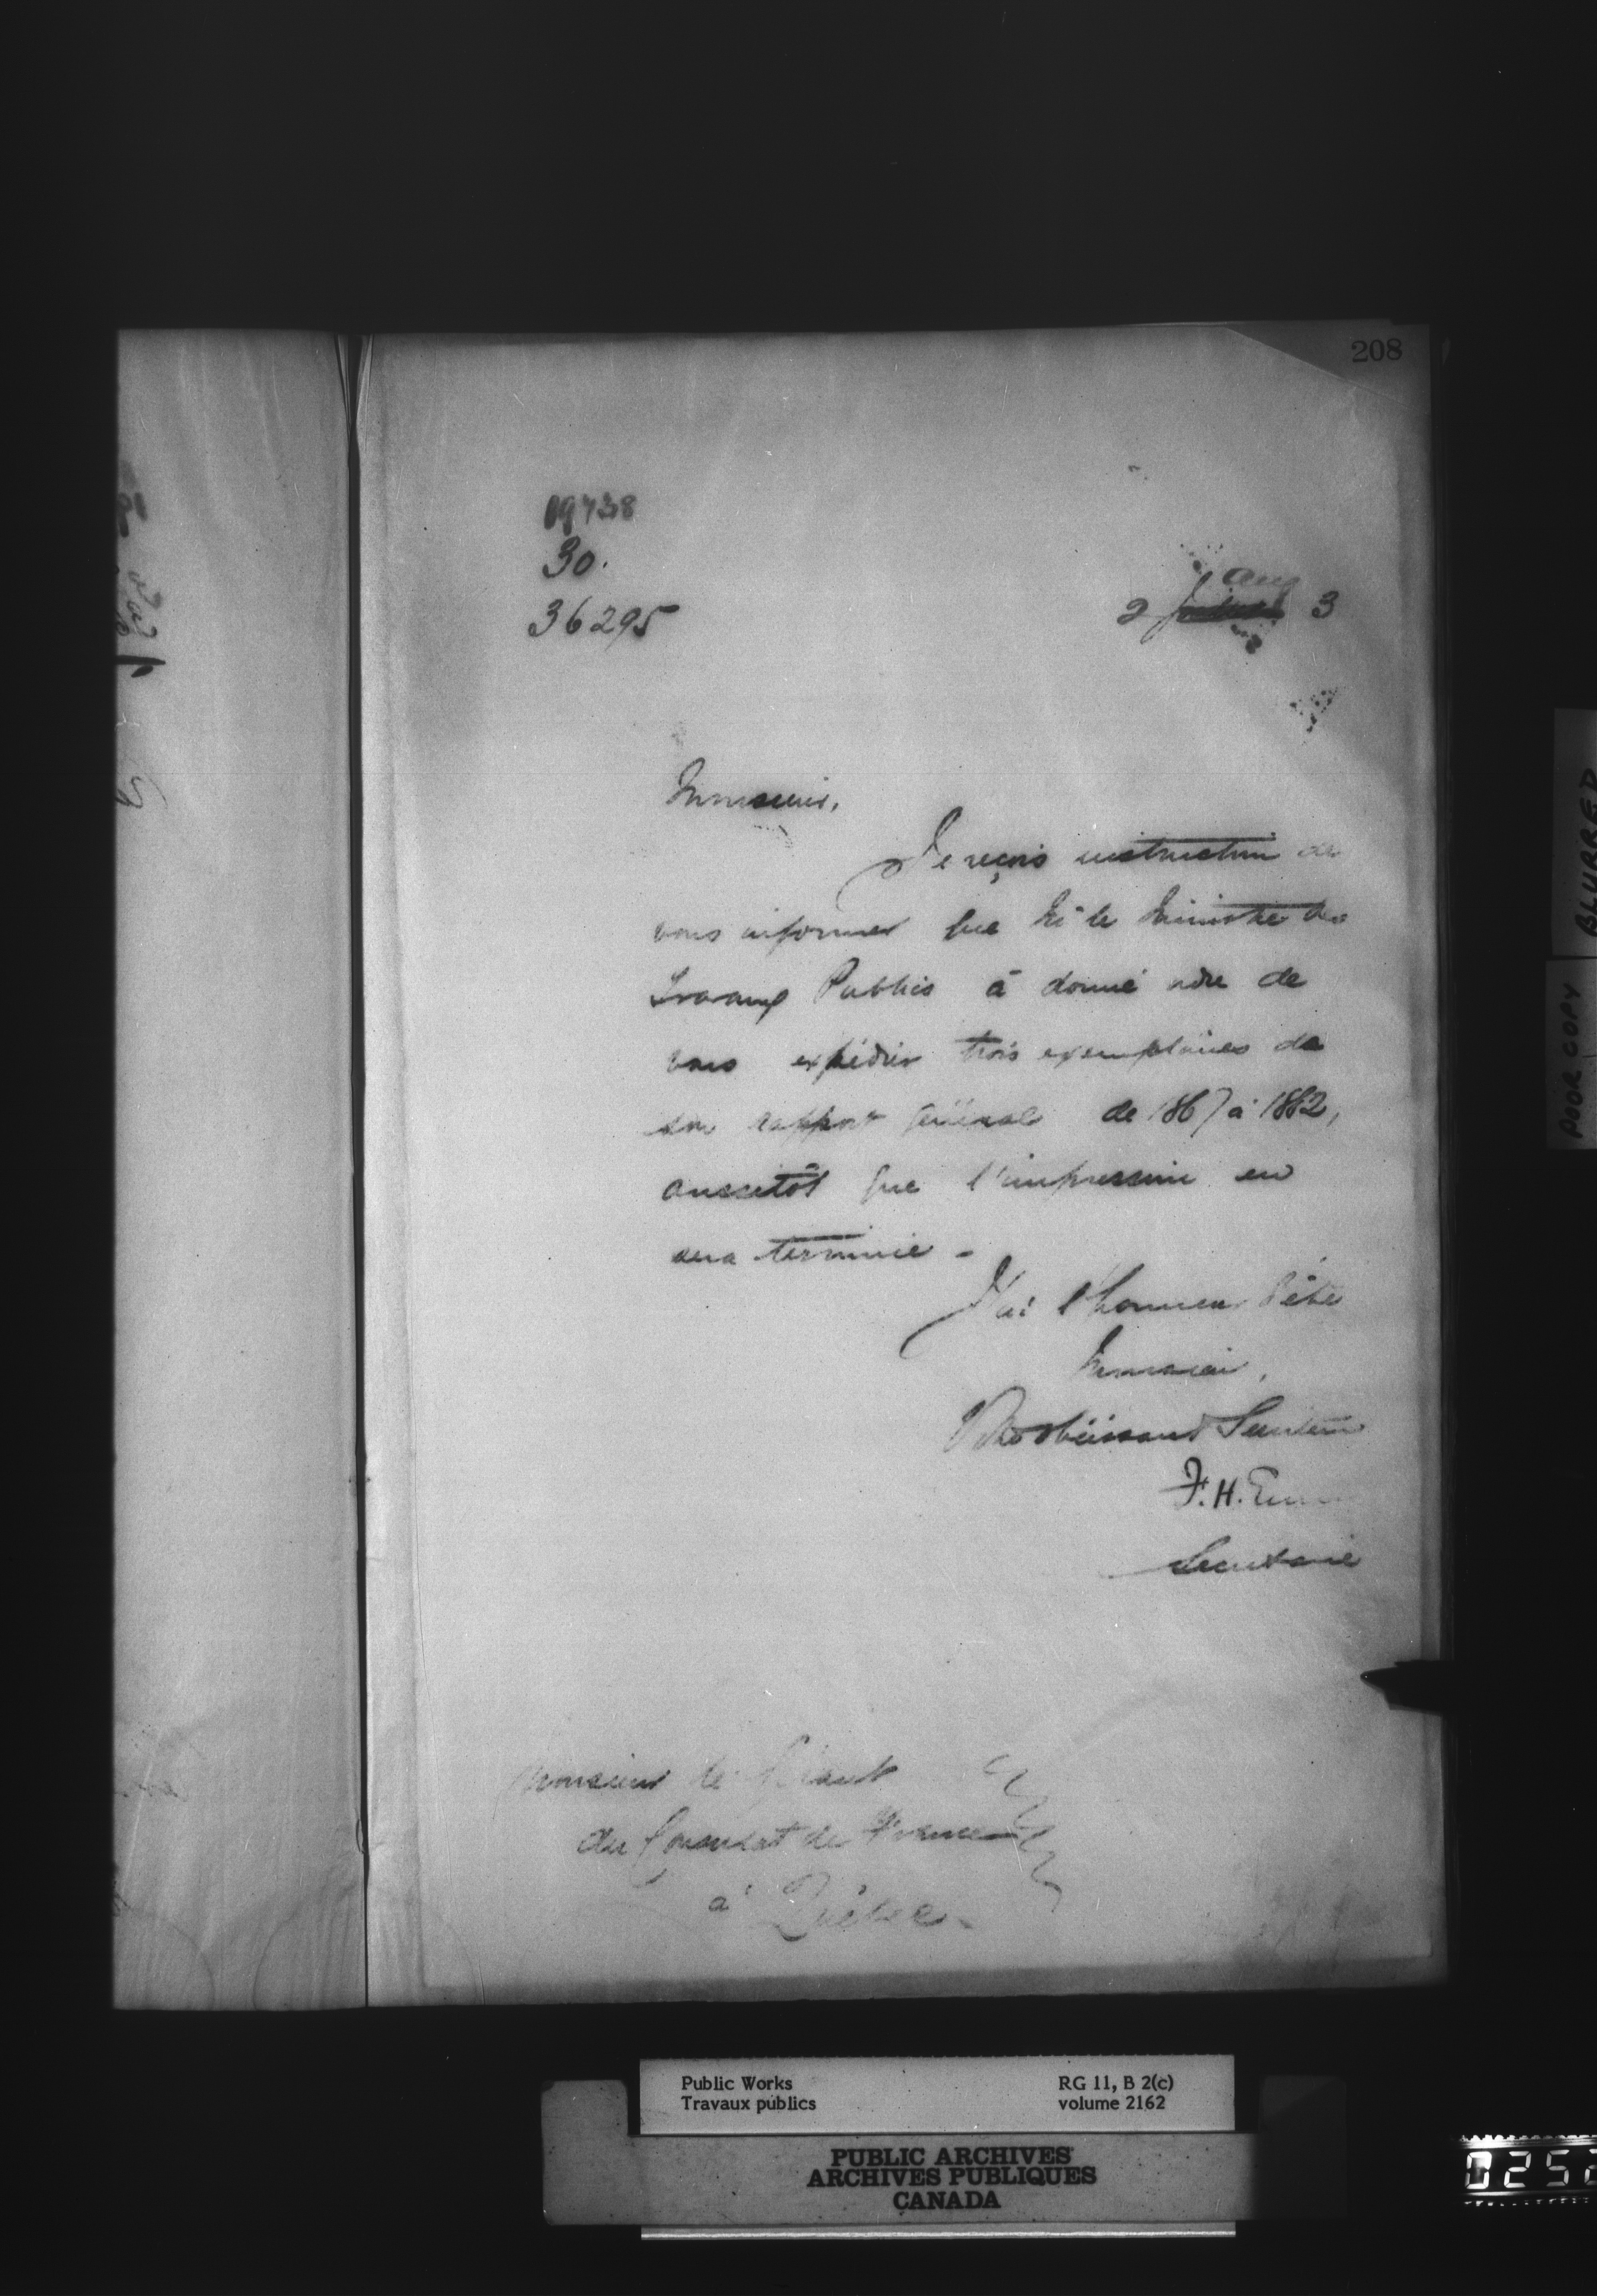 208
19738
30.
36295
Aug
2 3
Monsieur,
Je reçois instruction de
vous informer que Mr le Ministre des
Travaux Publics à donné ordre de
vous expédier trois exemplaires de
son rapport général de 1867 à 1882,
aussitôt que l'impression en
sera terminée -
J'ai l'honneur d'être
Monsieur,
Votre obéissant Serviteur
F. H.
Secrétaire
Monsieur le Gérant
du Consulat de France
à Québec -
BLURRED
POOR COPY
Public Works
Travaux publics
RG 11, B 2(c)
volume 2162
PUBLIC ARCHIVES
ARCHIVES PUBLIQUES
CANADA
0252